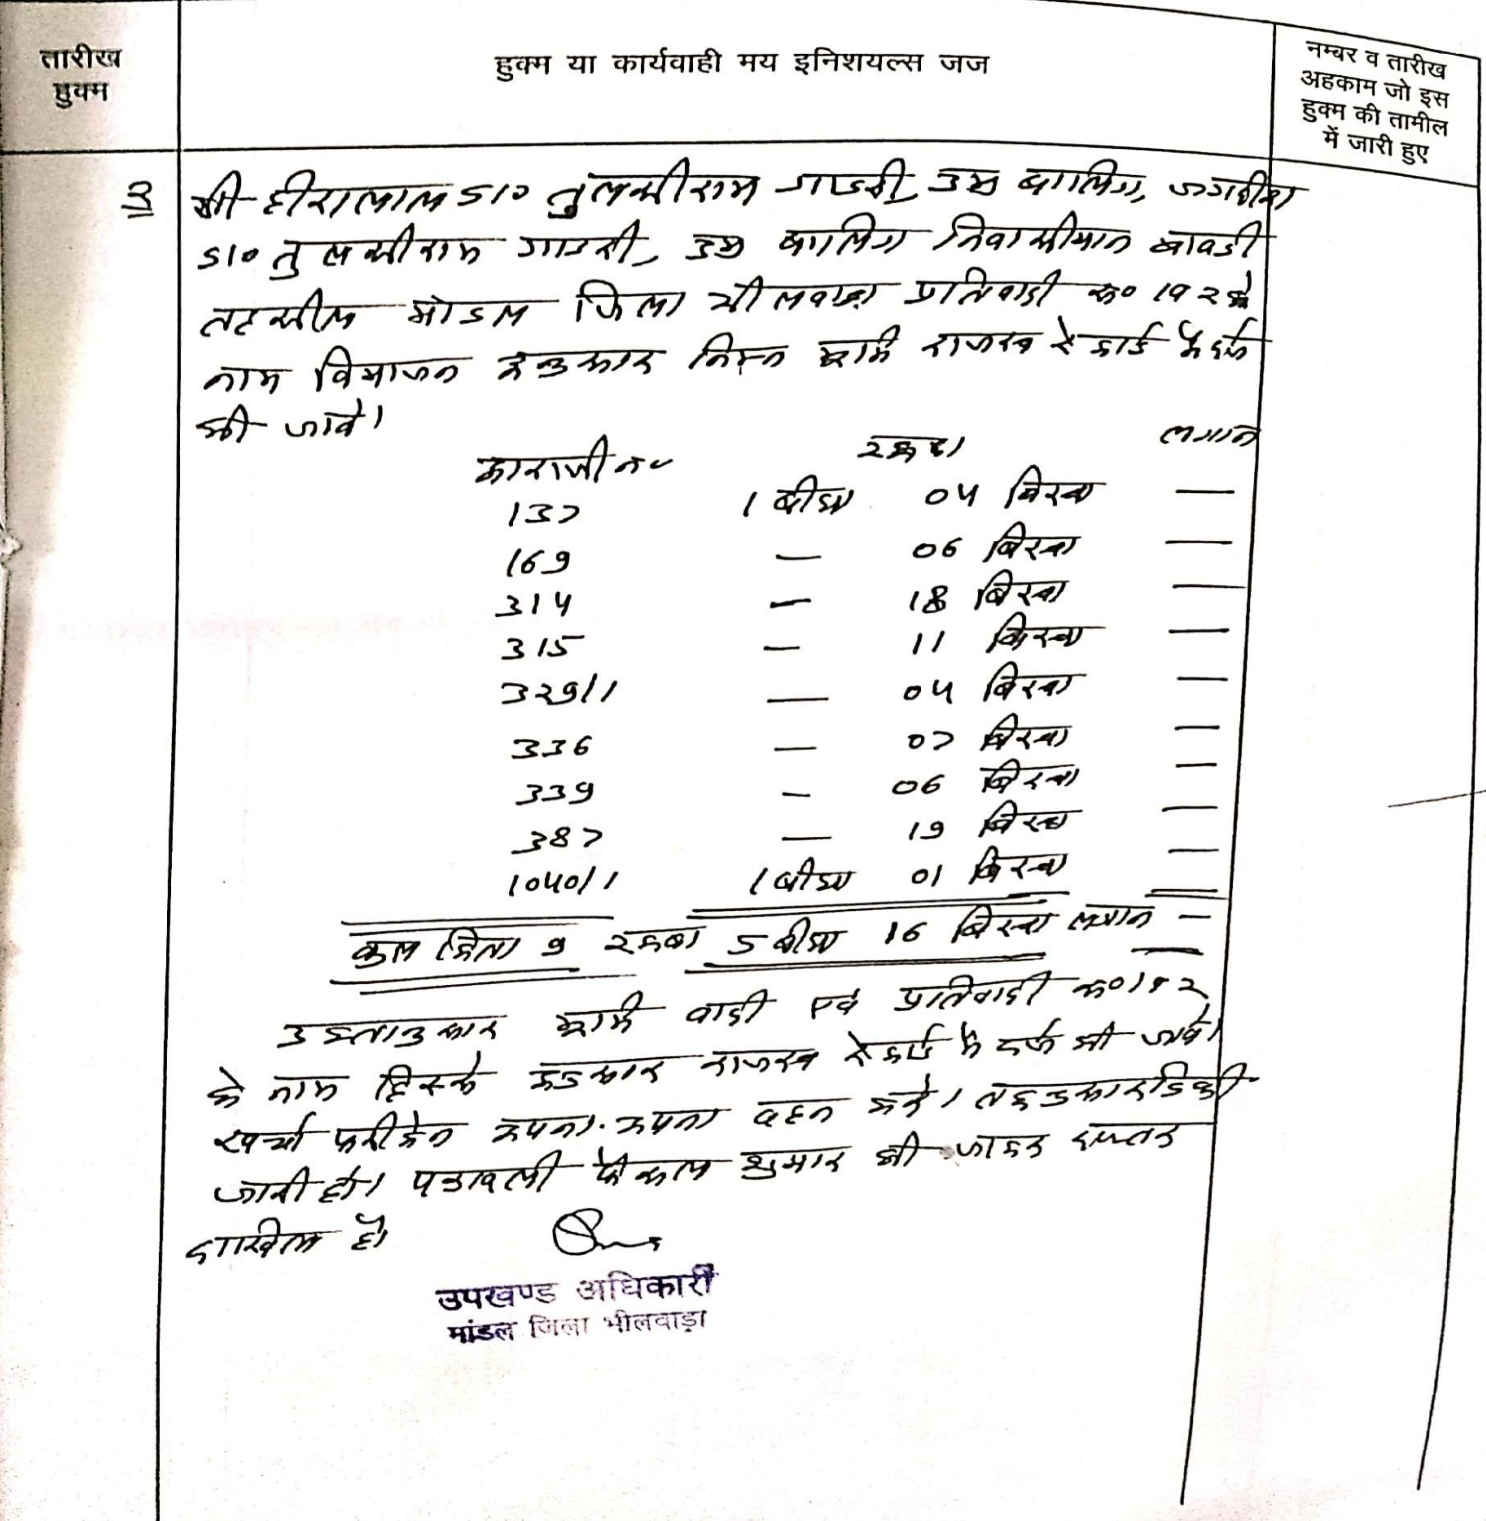 तारीख
हुक्म
हुक्म या कार्यवाही मय इनिशयल्स जज
नम्बर व तारीख
अहकाम जो इस
हुक्म की तामील
में जारी हुए
3 श्री हीरालाल S/o तुलसीराम गाडरी, उम्र बालिग, जगदीश
S/o तुलसीराम गाडरी, उम्र बालिग निवासीयान बावडी
तहसील मांडल जिला भीलवाडा प्रतिवादी क्र० 1व 2 के
नाम विभाजन अनुसार निम्न भूमि राजस्व रेकार्ड में दर्ज
की जावे।
आराजी न० रकबा लगान
137 1 बीघा 04 बिस्वा —
169 — 06 बिस्वा —
314 — 18 बिस्वा —
315 — 11 बिस्वा —
329/1 — 04 बिस्वा —
336 — 07 बिस्वा —
339 — 06 बिस्वा —
387 — 19 बिस्वा —
1040/1 1 बीघा 01 बिस्वा —
कुल किता 9 रकबा 5 बीघा 16 बिस्वा लगान —
उक्तानुसार भूमि वादी एवं प्रतिवादी क्र० 1व 2
के नाम हिस्से अनुसार राजस्व रेकार्ड में दर्ज की जावे।
खर्चा फरीकेन अपना-अपना वहन करे। तदनुसार डिक्री
जारी हो। पत्रावली फैसल शुमार की जाकर दफ्तर
दाखिल हो।
उपखण्ड अधिकारी
मांडल जिला भीलवाड़ा